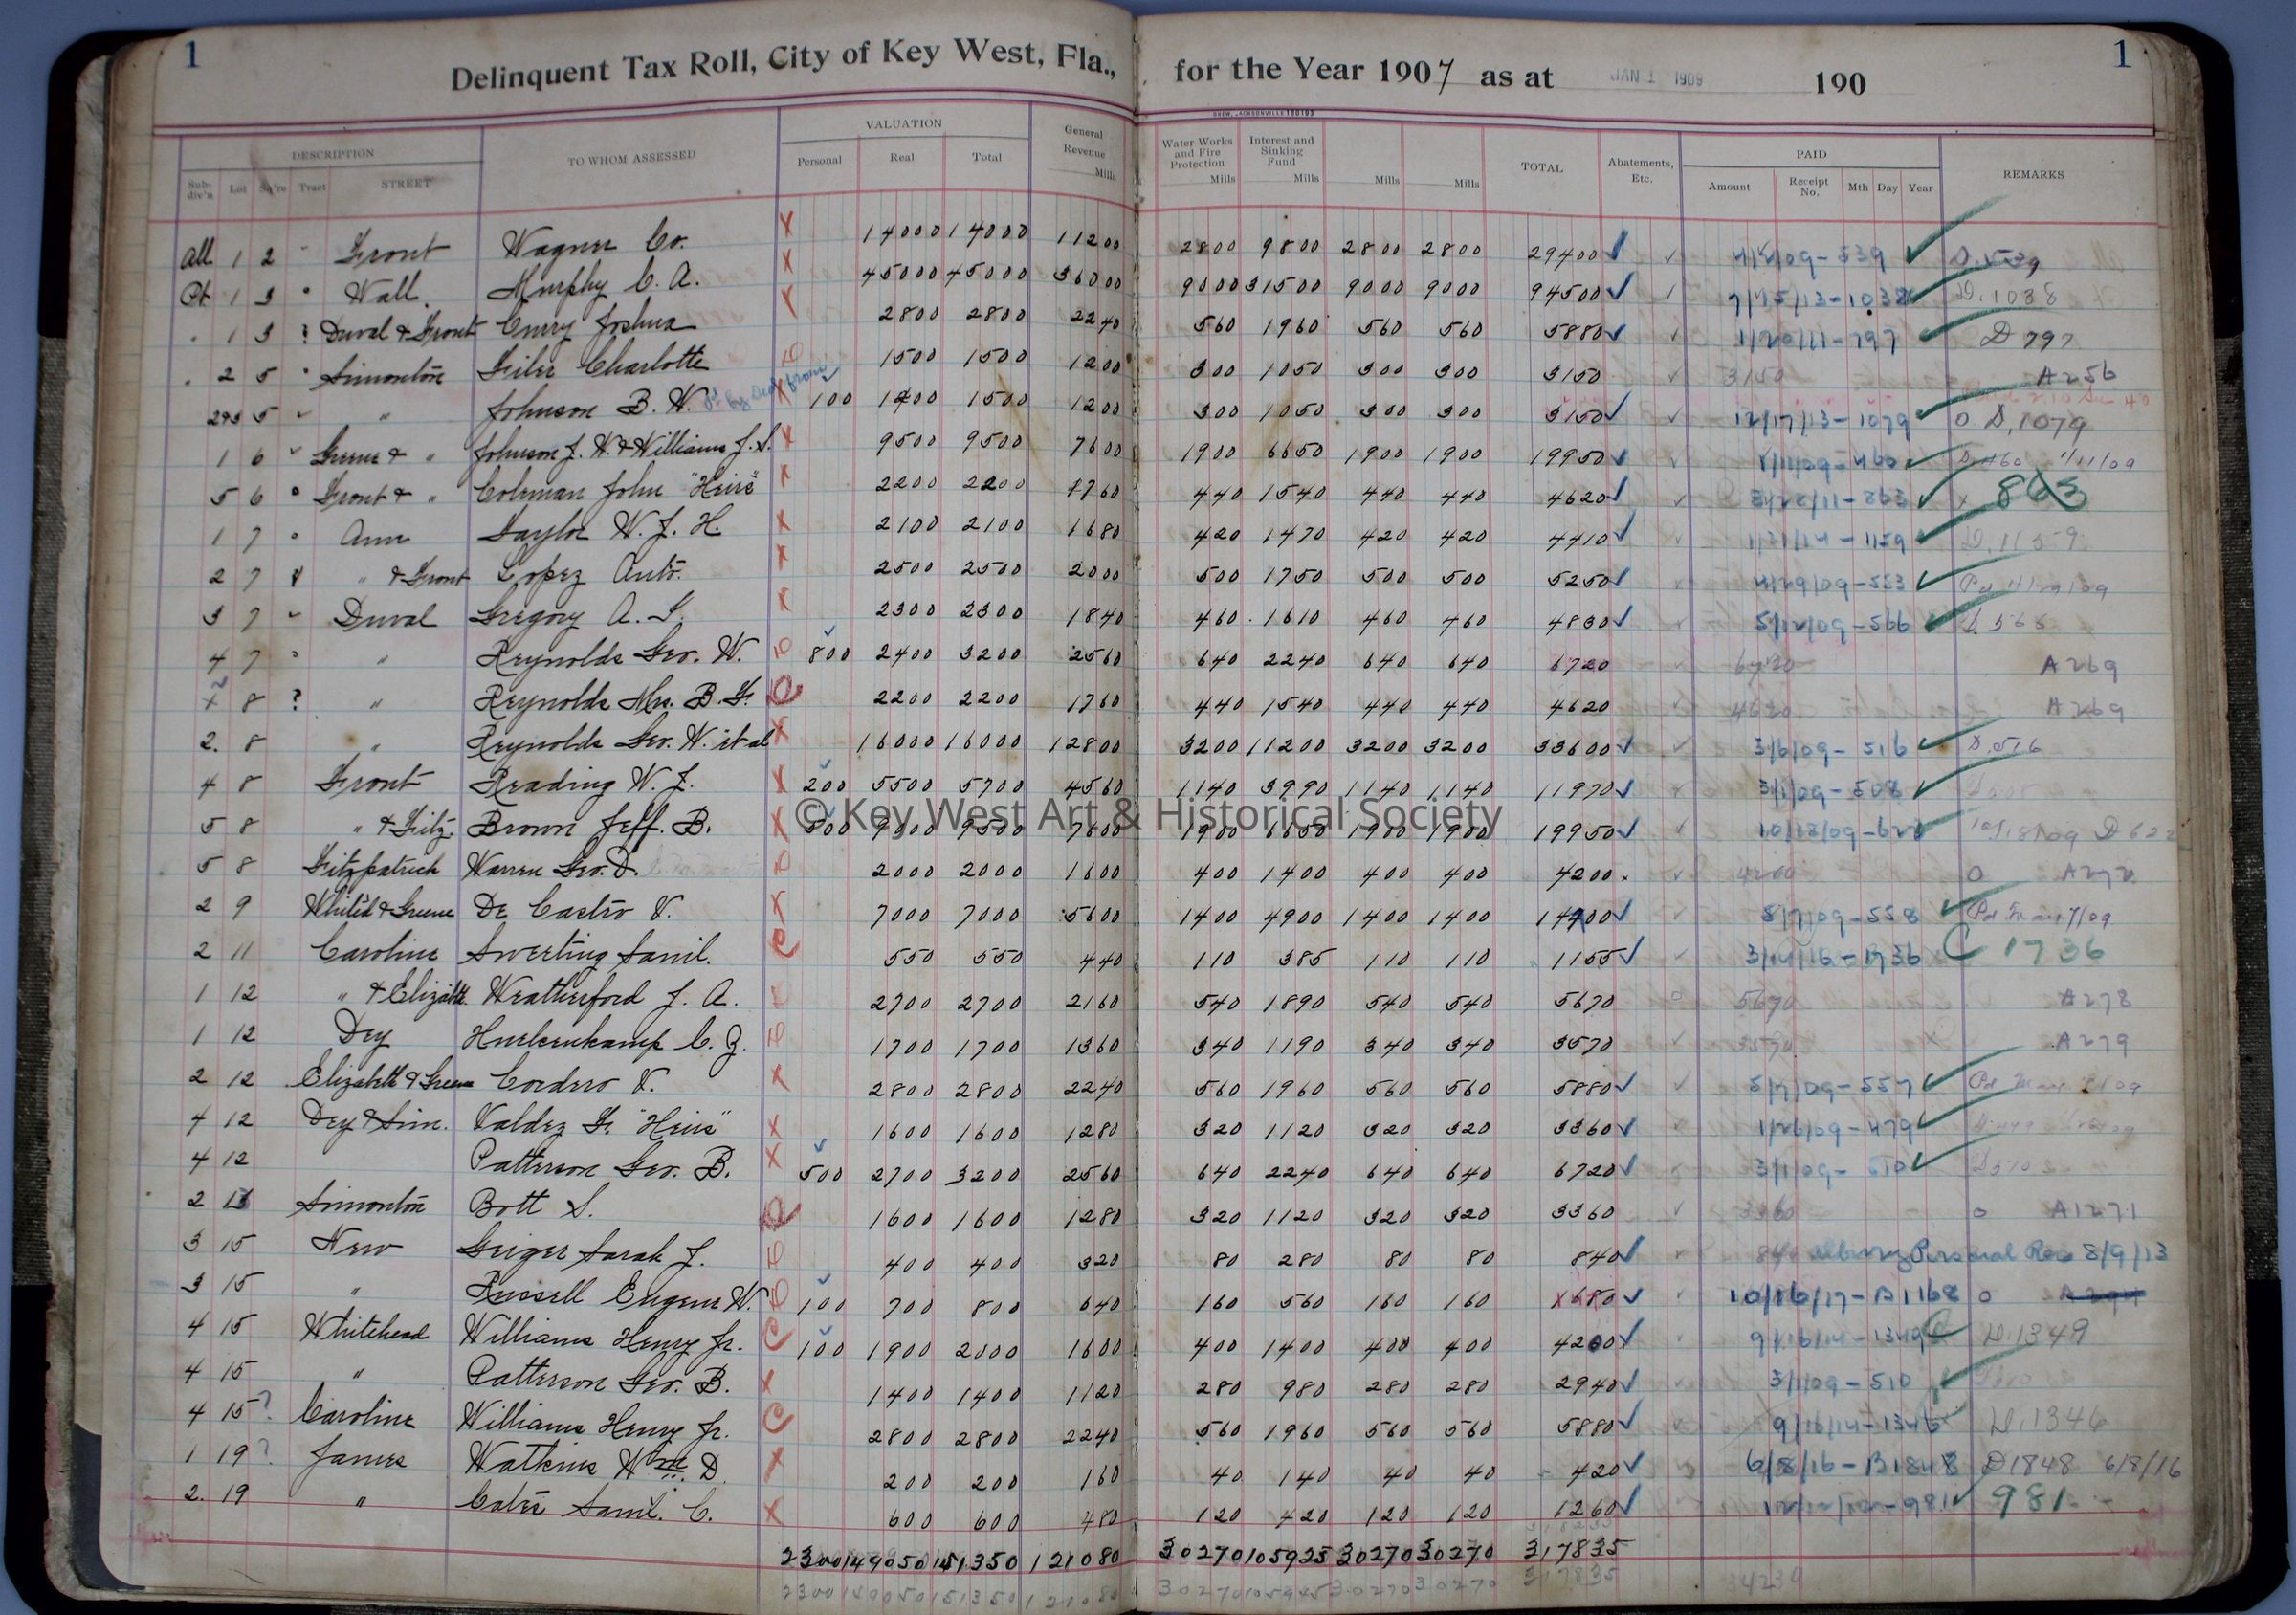 1 Delinquent Tax Roll, City of Key West, Fla., for the Year 1907 as at JAN 1 1909 190 1
DREW, JACKSONVILLE
DESCRIPTION TO WHOM ASSESSED VALUATION General Revenue Mills Water Works and Fire Protection Mills Interest and Sinking Fund Mills Mills Mills TOTAL Abatements, Etc. PAID REMARKS
Sub-div'n Lot Sq're Tract STREET Personal Real Total Amount Receipt No. Mth Day Year
All 1 2 Front Wagner Co. X 14000 14000 11200 2800 9800 2800 2800 29400 539 D. 539
Pt 1 3 Wall. Murphy C. A. X 45000 45000 36000 9000 31500 9000 9000 94500 7/15/13-1038 D. 1038
1 3 ? Duval & Front Curry Joshua X 2800 2800 2240 560 1960 560 560 5880 1/20/11-797 D 797
2 5 Simonton Charlotte 1500 1500 1200 300 1050 300 300 3150 3150 A256
2&3 5 " Johnson B. W. X 100 1400 1500 1200 300 1050 300 300 3150 12/17/13-1079 O D. 1079
1 6 Greene & " Johnson J. W. & Williams J. S. X 9500 9500 7600 1900 6650 1900 1900 19950 1/11/09-460 D. 460 1/11/09
5 6 Front & " Coleman John "Heirs" X 2200 2200 1760 440 1540 440 440 4620 3/22/11-863 863
1 7 Ann Saylor W. J. H. X 2100 2100 1680 420 1470 420 420 4410 1159 D. 1159
2 7 " & Front Lopez Anto. X 2500 2500 2000 500 1750 500 500 5250 4/29/09-553 Pd 4/29/09
3 7 Duval Gregory A. S. X 2300 2300 1840 460 1610 460 460 4830 5/12/09-566 D. 566
4 7 " Reynolds Geo. W. 800 2400 3200 2560 640 2240 640 640 6720 6720 A269
8 ? " Reynolds Mrs. B. F. 2200 2200 1760 440 1540 440 440 4620 4620 A269
2. 8 " Reynolds Geo. W. et al X 16000 16000 12800 3200 11200 3200 3200 33600 3/6/09-516 D. 516
4 8 Front Reading W. J. X 200 5500 5700 4560 1140 3990 1140 1140 11970 3/1/09-508
© Key West Art & Historical Society
5 8 " & Fitz. Brown Jeff. B. X 500 9000 9500 7600 1900 6650 1900 1900 19950 10/18/09-622 10/18/09 D 622
5 8 Fitzpatrick Warren Geo. D. 2000 2000 1600 400 1400 400 400 4200 4200 O A272
2 9 Whit'd & Greene De Castro V. X 7000 7000 5600 1400 4900 1400 1400 14700 5/7/09-558 Pd May 7/09
2 11 Caroline Swerting Saml. C 550 550 440 110 385 110 110 1155 3/14/16-B1736 C 1736
1 12 " & Elizabth Weatherford J. A. 2700 2700 2160 540 1890 540 540 5670 5670 A278
1 12 Dey Hurlenkamp C. Z. 1700 1700 1360 340 1190 340 340 3570 3570 X A279
2 12 Elizabeth & Greene Cordero V. X 2800 2800 2240 560 1960 560 560 5880 5/7/09-557 Pd May 7/09
4 12 Dey & Sim. Valdez F. "Heirs" X 1600 1600 1280 320 1120 320 320 3360 1/26/09-479
4 12 Patterson Geo. B. X 500 2700 3200 2560 640 2240 640 640 6720 3/1/09-510 D 510
2 13 Simonton Bott S. 1600 1600 1280 320 1120 320 320 3360 3360 O A1271
3 15 New Geiger Sarah J. 400 400 320 80 280 80 80 840 840 Albury Personal Rec 8/9/13
3 15 " Russell Eugene W. 100 700 800 640 160 560 160 160 1680 10/16/17-B1168 O
4 15 Whitehead Williams Henry Jr. C 100 1900 2000 1600 400 1400 400 400 4200 9/16/14-1349 D. 1349
4 15 " Patterson Geo. B. X 1400 1400 1120 280 980 280 280 2940 3/1/09-510
4 15 ? Caroline Williams Henry Jr. C 2800 2800 2240 560 1960 560 560 5880 9/16/14-1346 D. 1346
1 19 ? James Watkins Wm. D. X 200 200 160 40 140 40 40 420 6/8/16-B1848 D1848 6/8/16
2. 19 " Cates Saml. C. X 600 600 480 120 420 120 120 1260 981 981
2300 149050 151350 121080 30270 105925 30270 30270 317835
2300 149050 151350 121080 30270 105945 30270 30270 317835 34230